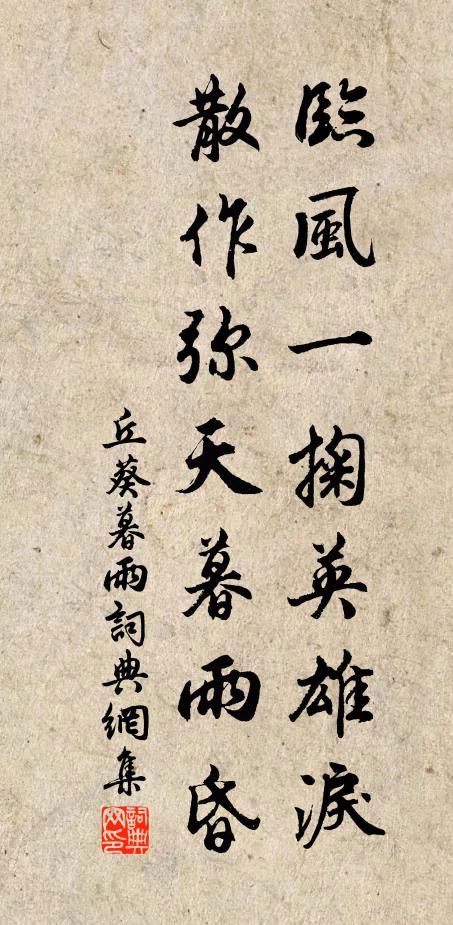 臨風一掬英雄淚
散作弥天暮雨昏
丘葵暮雨詞典網集
詞典网印